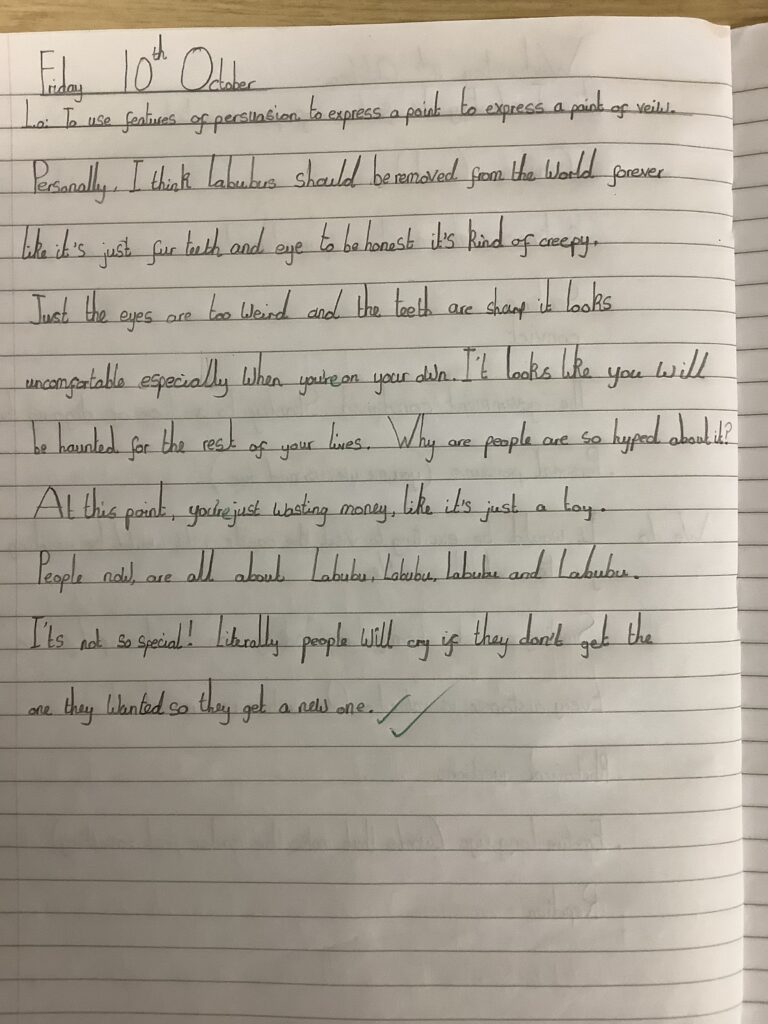 Friday 10th October
Lo: To use features of persuasion to express a point to express a point of veiw.
Personally, I think Labubus should be removed from the World forever
like it's just fur teeth and eye to be honest it's kind of creepy.
Just the eyes are too weird and the teeth are sharp it looks
uncomfortable especially when you're on your own. I't looks like you will
be haunted for the rest of your lives. Why are people are so hyped about it?
At this point, you're just wasting money, like it's just a toy.
People now, are all about Labubu, Labubu, Labubu and Labubu.
I'ts not so special! Literally people will cry if they don't get the
one they wanted so they get a new one.